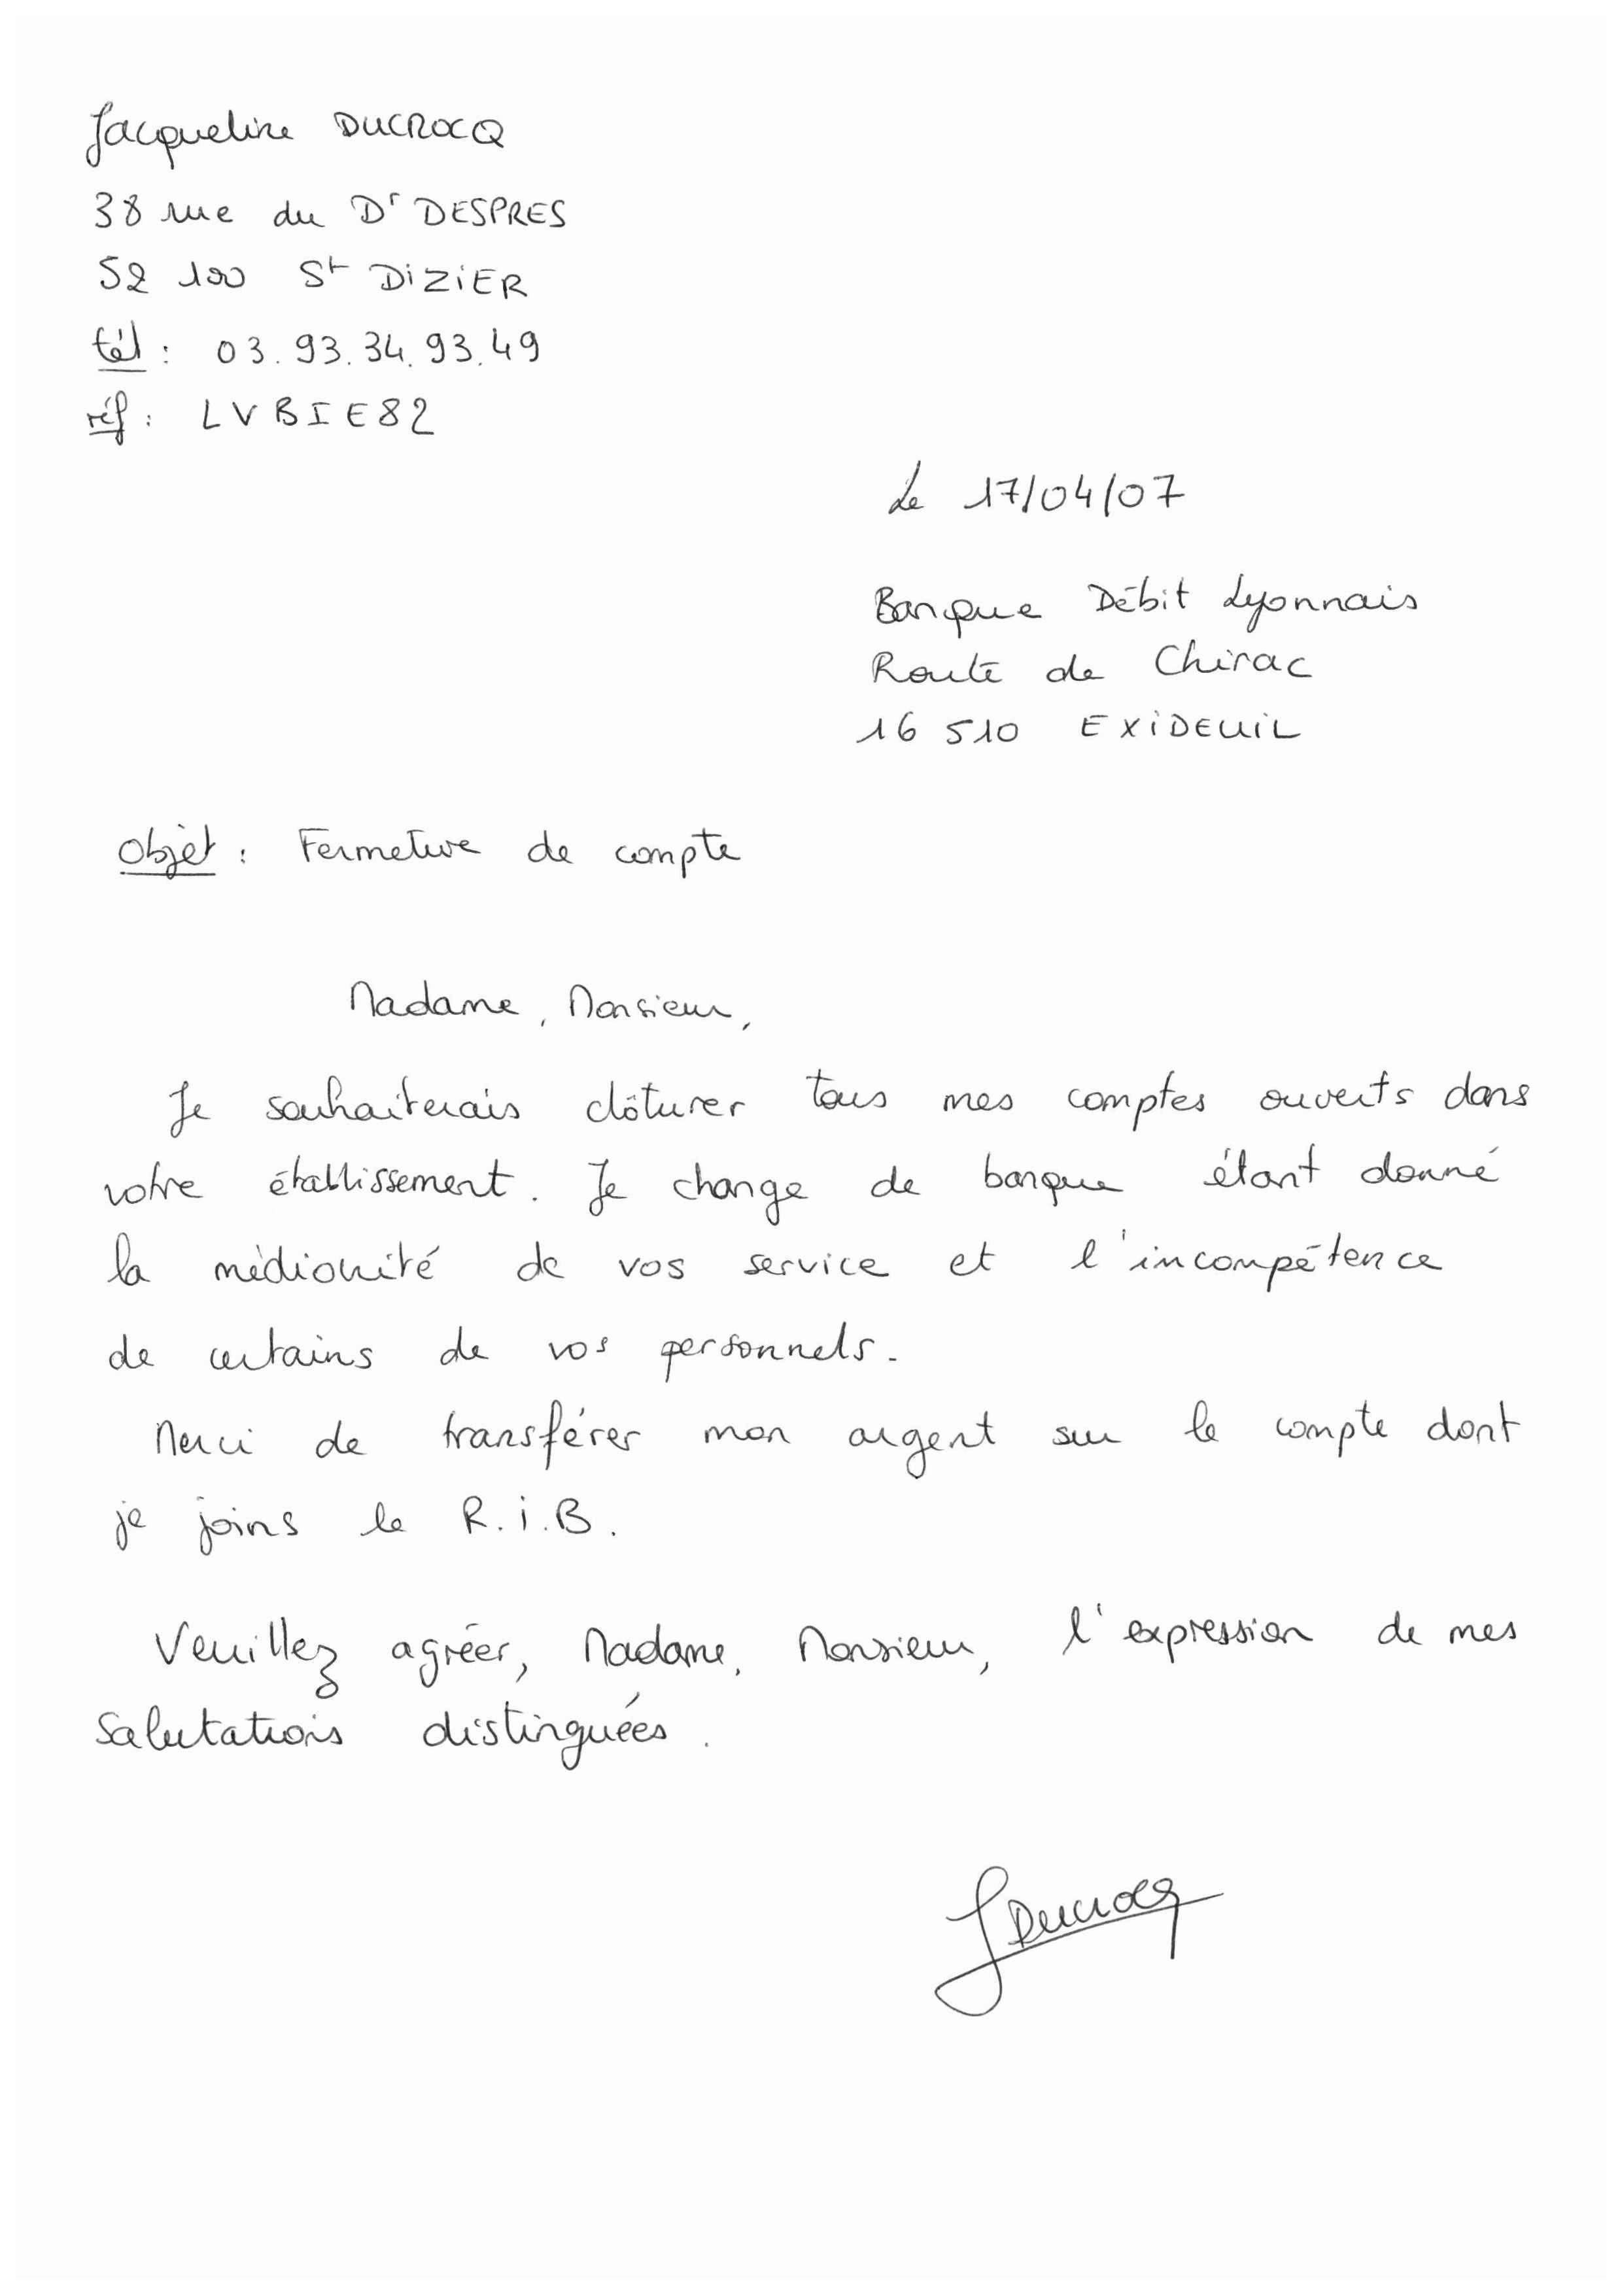 Jacqueline DUCROCQ
38 rue du Dr DESPRES
52 100 St DiZiER
tél : 03.93.34.93.49
réf : LVBIE82
Le 17/04/07
Banque Débit Lyonnais
Route de Chirac
16 510 EXiDEUiL
Objet : Fermeture de compte
Madame, Monsieur,
Je souhaiterais clôturer tous mes comptes ouverts dans
votre établissement. Je change de banque étant donné
la médiocrité de vos service et l'incompétence
de certains de vos personnels.
Merci de transférer mon argent sur le compte dont
je joins le R.i.B.
Veuillez agréer, Madame, Monsieur, l'expression de mes
salutations distinguées.
JDucrocq